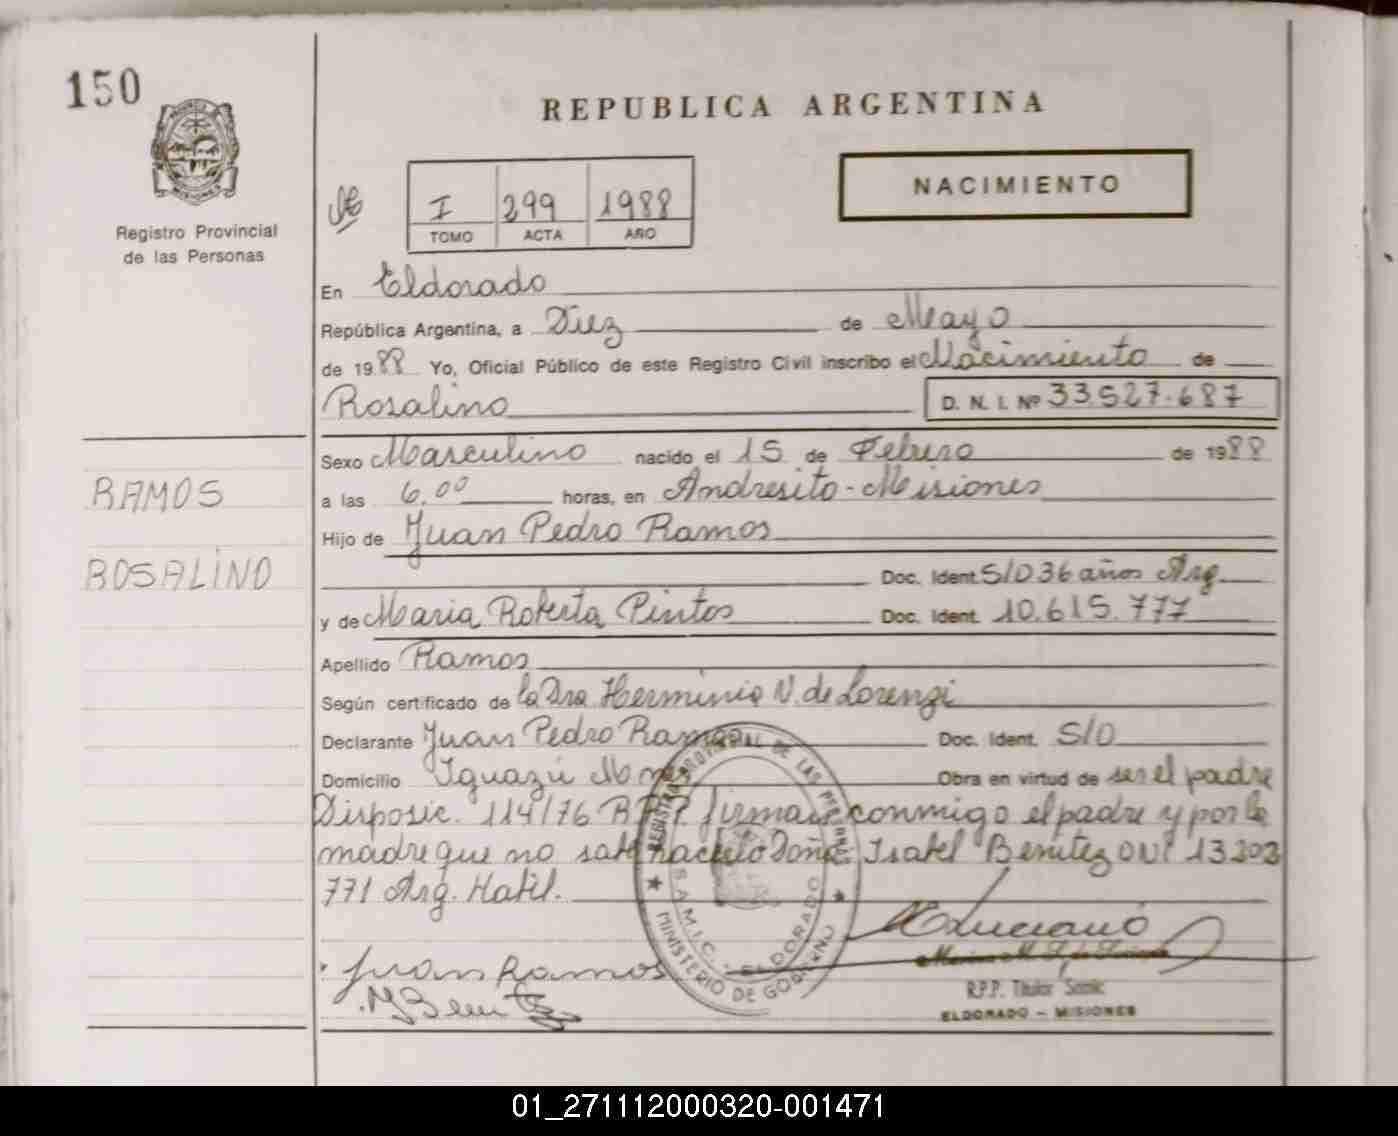 150
REPUBLICA ARGENTINA
MISIONES
Registro Provincial
de las Personas
I 299 1988
TOMO ACTA AÑO
NACIMIENTO
En Eldorado
República Argentina, a Diez de Mayo
de 1988 Yo, Oficial Público de este Registro Civil inscribo el Nacimiento de
Rosalino D. N. I. Nº 33.527.687
Sexo Masculino nacido el 15 de Febrero de 1988
a las 6,00 horas, en Andresito - Misiones
Hijo de Juan Pedro Ramos
Doc. Ident. S/D 36 años Arg.
y de Maria Roberta Pintos Doc. Ident. 10.615.777
Apellido Ramos
Según certificado de la Dra. Herminia N. de Lorenzi
Declarante Juan Pedro Ramos Doc. Ident. S/D
Domicilio Iguazú Mnes Obra en virtud de ser el padre
Disposic. 114/76 R.P.P. firma conmigo el padre y por la
madre que no sabe hacerlo Doña Isabel Benitez DNI 13 203
771 Arg. Habil.
RAMOS
ROSALINO
REGISTRO PROVINCIAL DE LAS PERSONAS
S.A.M.I.C. - ELDORADO
MINISTERIO DE GOBIERNO
Juan Ramos
Luciano
R.P.P. Titular Samic
ELDORADO - MISIONES
01_271112000320-001471